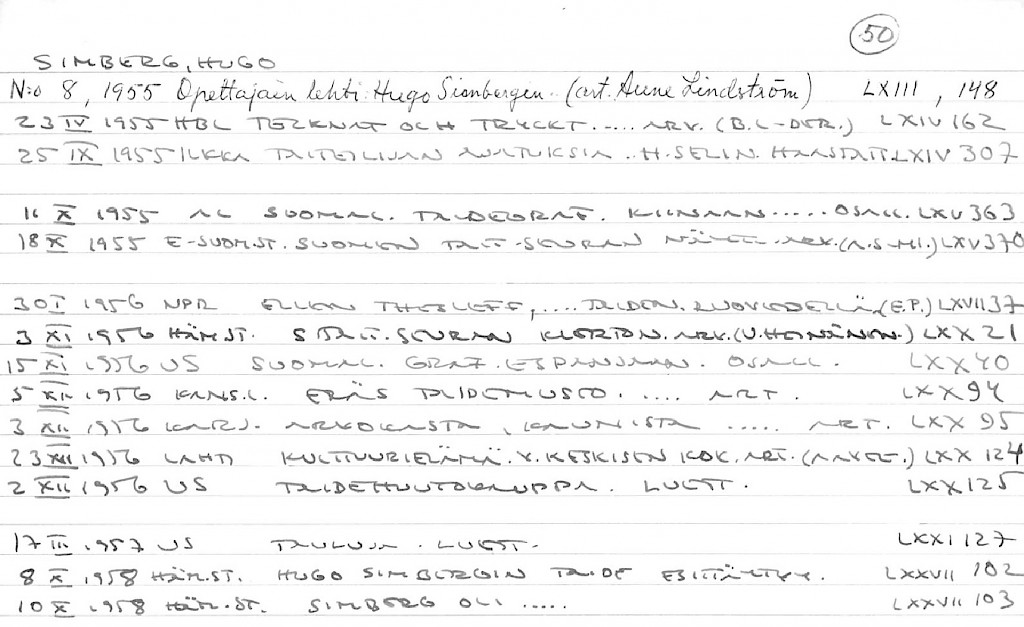 50
SIMBERG, HUGO
N:o 8, 1955 Opettajain lehti: Hugo Simbergin.. (art. Aune Lindström) LXIII, 148
23 IV 1955 HBL TECKNAT OCH TRYCKT..... ARV. (B.L-DER.) LXIV 162
25 IX 1955 ILKKA TAITEILIJAN AJATUKSIA .. H. SELIN. HAASTATT. LXIV 307
11 X 1955 AL SUOMAL. TAIDEGRAF. KIINAAN..... OSALL. LXV 363
18 X 1955 E-SUOM.ST. SUOMEN TAIT-SEURAN NÄYTT. ARV. (A.S-MI.) LXV 370
30 I 1956 NPR ELLEN THESLEFF, .... TAIDEN. RUOVEDELLÄ (E.P.) LXVII 37
3 XI 1956 HÄM.ST. S TAIT. SEURAN KIERTON. ARV. (V. HEINÄNEN.) LXX 21
15 XI 1956 US SUOMAL. GRAF. ESPANJAAN. OSALL. LXX 40
5 XII 1956 KANS.L. ERÄS TAIDEMUSEO. .... ART. LXX 94
3 XII 1956 KARJ. ARVOKASTA, KAUNISTA ..... ART. LXX 95
23 XII 1956 LAHTI KULTTUURIELÄMÄ. V. KESKISEN KOK. ART. LXX 124
2 XII 1956 US TAIDEHUUTOKAUPPA. LUETT. LXX 125
17 III 1957 US TAULUJA. LUETT. LXXI 127
8 X 1958 HÄM.ST. HUGO SIMBERGIN TAIDE ESITTÄYTYY. LXXVII 102
10 X 1958 HÄM.ST. SIMBERG OLI ..... LXXVII 103